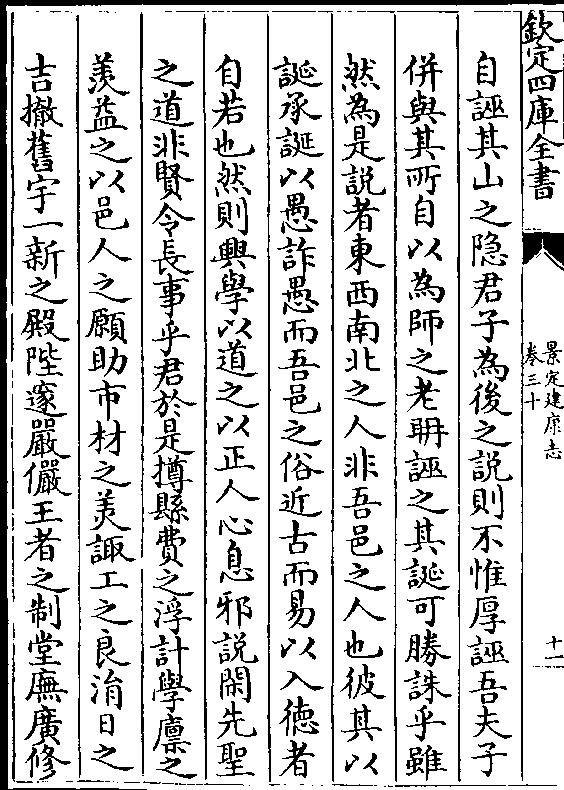 欽定四庫全書
景定建康志
卷三十
十一
自誣其山之隐君子為後之説則不惟厚誣吾夫子
併與其所自以為師之老耼誣之其誕可勝誅乎雖
然為是説者東西南北之人非吾邑之人也彼其以
誕承誕以愚詐愚而吾邑之俗近古而易以入徳者
自若也然則興學以道之以正人心息邪説閑先聖
之道非賢令長事乎君於是撙縣費之浮計學廪之
羨益之以邑人之願助市材之美諏工之良涓日之
吉撤舊宇一新之殿陛邃嚴儼王者之制堂廡廣修